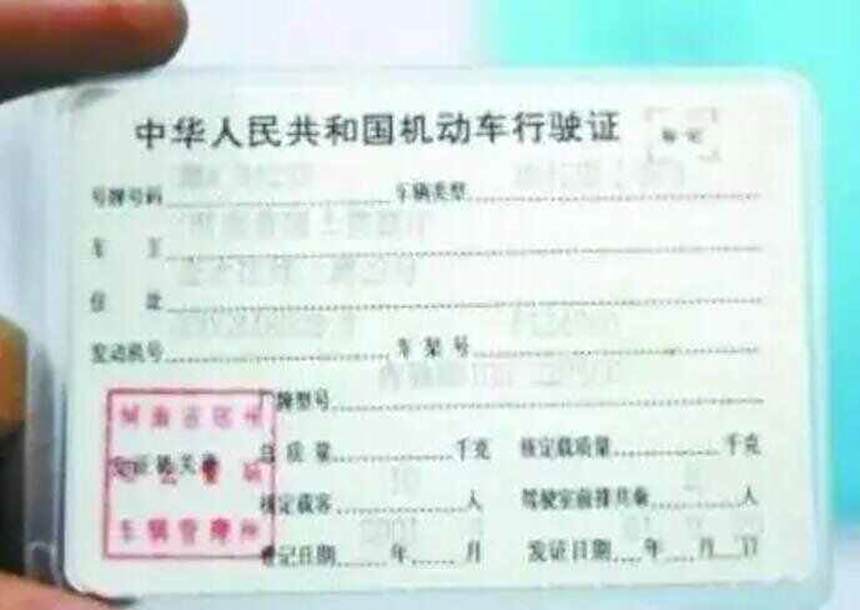 中华人民共和国机动车行驶证
号牌号码 车辆类型
车 主
住 址
发动机号 车架号
厂牌型号
总质量 千克 核定载质量 千克
发证机关章
核定载客 人 驾驶室前排共乘 人
车辆管理所
登记日期 年 月 发证日期 年 月 日